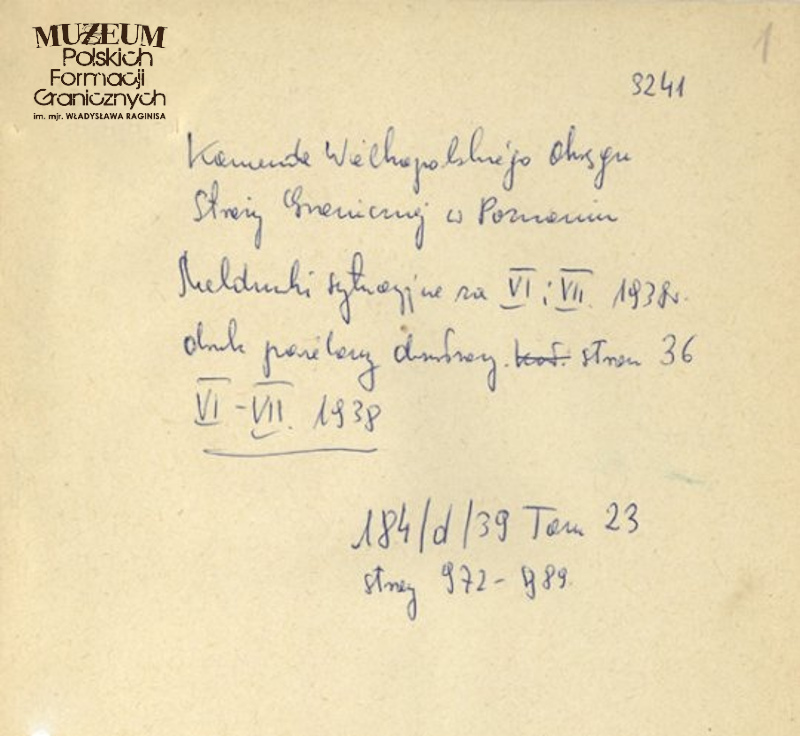 MUZEUM
Polskich
Formacji
Granicznych
im. mjr. WŁADYSŁAWA RAGINISA
1
3241
Komenda Wielkopolskiego Okręgu
Straży Granicznej w Poznaniu
Meldunki sytuacyjne za VI i VII. 1938r.
druk powielany dwustrony. kod. stron 36
VI - VII. 1938
184/d/39 Tom 23
strony 972 - 989.